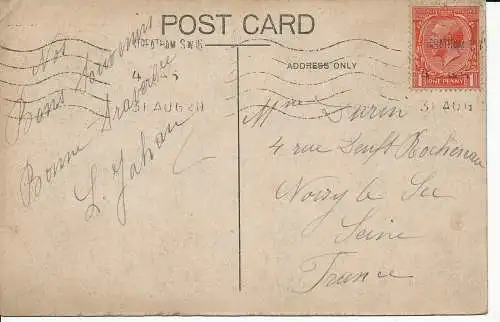 POST CARD
STREATHAM S.W.16
4
31 AUG 20
ADDRESS ONLY
STREATHAM
31 AUG
ONE PENNY 1
Nos
Bons Souvenirs
Bonne
L. Jahan
Mme Durin
4 rue Denfert Rochereau
Noisy le Sec
Seine
France